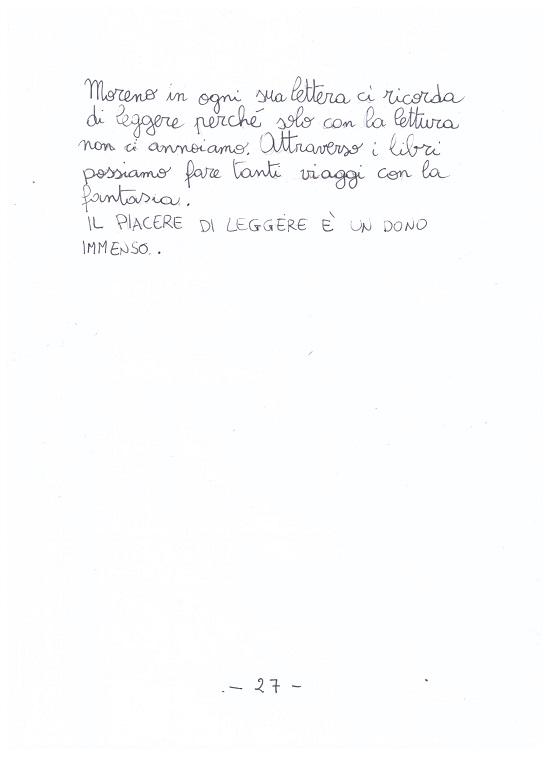 Moreno in ogni sua lettera ci ricorda
di leggere perché solo con la lettura
non ci annoiamo. Attraverso i libri
possiamo fare tanti viaggi con la
fantasia.
IL PIACERE DI LEGGERE È UN DONO
IMMENSO..
- 27 -